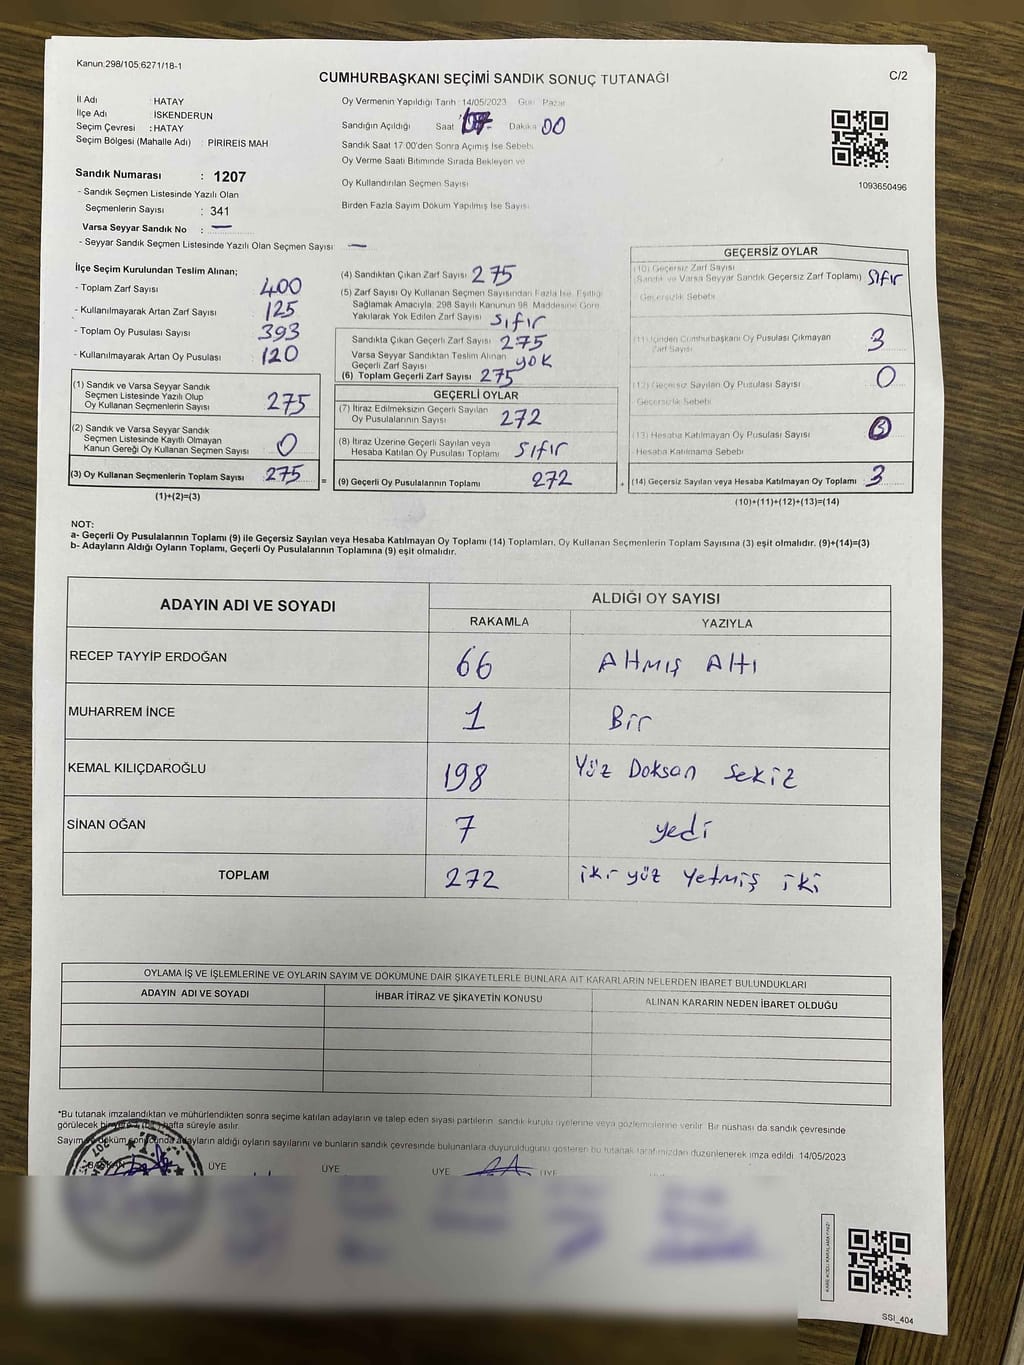 Kanun:298/105;6271/18-1
C/2
CUMHURBAŞKANI SEÇİMİ SANDIK SONUÇ TUTANAĞI
İl Adı : HATAY
İlçe Adı : İSKENDERUN
Seçim Çevresi : HATAY
Seçim Bölgesi (Mahalle Adı) : PİRİREİS MAH
Sandık Numarası : 1207
- Sandık Seçmen Listesinde Yazılı Olan
Seçmenlerin Sayısı : 341
Varsa Seyyar Sandık No : —
- Seyyar Sandık Seçmen Listesinde Yazılı Olan Seçmen Sayısı —
Oy Vermenin Yapıldığı Tarih 14/05/2023 Gün Pazar
Sandığın Açıldığı Saat Dakika 00
Sandık Saat 17:00'den Sonra Açımış İse Sebebi
Oy Verme Saati Bitiminde Sırada Bekleyen ve
Oy Kullandırılan Seçmen Sayısı
Birden Fazla Sayım Döküm Yapılmış İse Sayısı
1093650496
İlçe Seçim Kurulundan Teslim Alınan;
- Toplam Zarf Sayısı 400
- Kullanılmayarak Artan Zarf Sayısı 125
- Toplam Oy Pusulası Sayısı 393
- Kullanılmayarak Artan Oy Pusulası 120
(1) Sandık ve Varsa Seyyar Sandık
Seçmen Listesinde Yazılı Olup
Oy Kullanan Seçmenlerin Sayısı 275
(2) Sandık ve Varsa Seyyar Sandık
Seçmen Listesinde Kayıtlı Olmayan
Kanun Gereği Oy Kullanan Seçmen Sayısı 0
(3) Oy Kullanan Seçmenlerin Toplam Sayısı 275
(1)+(2)=(3)
=
(4) Sandıktan Çıkan Zarf Sayısı 275
(5) Zarf Sayısı Oy Kullanan Seçmen Sayısından Fazla İse, Eşitliği
Sağlamak Amacıyla; 298 Sayılı Kanunun 98. Maddesine Göre
Yakılarak Yok Edilen Zarf Sayısı sıfır
Sandıkta Çıkan Geçerli Zarf Sayısı 275
Varsa Seyyar Sandıktan Teslim Alınan
Geçerli Zarf Sayısı yok
(6) Toplam Geçerli Zarf Sayısı 275
GEÇERLİ OYLAR
(7) İtiraz Edilmeksizin Geçerli Sayılan
Oy Pusulalarının Sayısı 272
(8) İtiraz Üzerine Geçerli Sayılan veya
Hesaba Katılan Oy Pusulası Toplamı sıfır
(9) Geçerli Oy Pusulalarının Toplamı 272
+
GEÇERSİZ OYLAR
(10) Geçersiz Zarf Sayısı
(Sandık ve Varsa Seyyar Sandık Geçersiz Zarf Toplamı) sıfır
Geçersizlik Sebebi
(11) İçinden Cumhurbaşkanı Oy Pusulası Çıkmayan
Zarf Sayısı 3
(12) Geçersiz Sayılan Oy Pusulası Sayısı 0
Geçersizlik Sebebi
(13) Hesaba Katılmayan Oy Pusulası Sayısı
Hesaba Katılmama Sebebi
(14) Geçersiz Sayılan veya Hesaba Katılmayan Oy Toplamı 3
(10)+(11)+(12)+(13)=(14)
NOT:
a- Geçerli Oy Pusulalarının Toplamı (9) ile Geçersiz Sayılan veya Hesaba Katılmayan Oy Toplamı (14) Toplamları, Oy Kullanan Seçmenlerin Toplam Sayısına (3) eşit olmalıdır. (9)+(14)=(3)
b- Adayların Aldığı Oyların Toplamı, Geçerli Oy Pusulalarının Toplamına (9) eşit olmalıdır.
ADAYIN ADI VE SOYADI
ALDIĞI OY SAYISI
RAKAMLA YAZIYLA
RECEP TAYYİP ERDOĞAN 66 Altmış Altı
MUHARREM İNCE 1 Bir
KEMAL KILIÇDAROĞLU 198 Yüz Doksan Sekiz
SİNAN OĞAN 7 yedi
TOPLAM 272 iki yüz Yetmiş iki
OYLAMA İŞ VE İŞLEMLERİNE VE OYLARIN SAYIM VE DÖKÜMÜNE DAİR ŞİKAYETLERLE BUNLARA AİT KARARLARIN NELERDEN İBARET BULUNDUKLARI
ADAYIN ADI VE SOYADI İHBAR İTİRAZ VE ŞİKAYETİN KONUSU ALINAN KARARIN NEDEN İBARET OLDUĞU
*Bu tutanak imzalandıktan ve mühürlendikten sonra seçime katılan adayların ve talep eden siyasi partilerin sandık kurulu üyelerine veya gözlemcilerine verilir. Bir nüshası da sandık çevresinde
görülecek bir yere 1 (bir) hafta süreyle asılır.
Sayım ve döküm sonucunda adayların aldığı oyların sayılarını ve bunların sandık çevresinde bulunanlara duyurulduğunu gösteren bu tutanak tarafımızdan düzenlenerek imza edildi. 14/05/2023
BAŞKAN ÜYE ÜYE ÜYE ÜYE
SSI_404